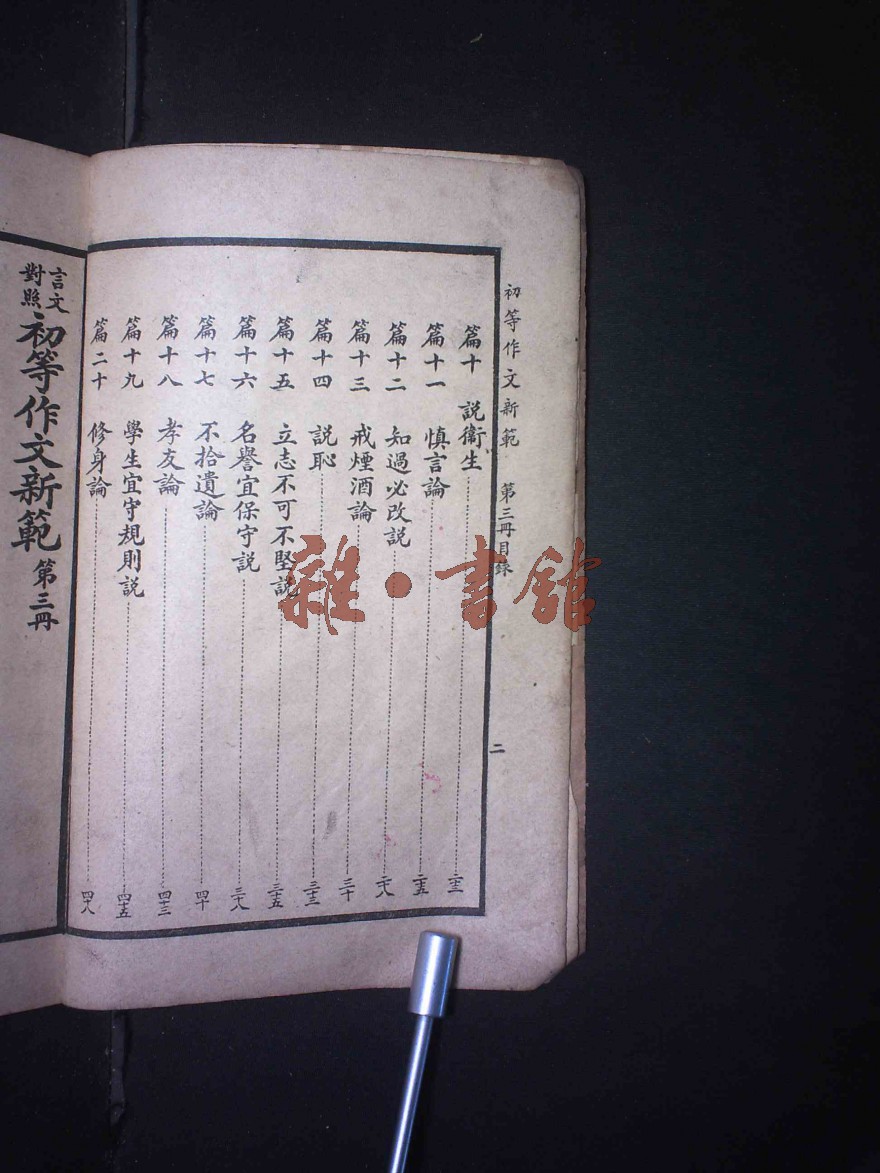 初等作文新範 第三冊目錄
二
篇十 説衛生 二三
篇十一 慎言論 二五
篇十二 知過必改説 二八
篇十三 戒煙酒論 三十
篇十四 説恥 三三
篇十五 立志不可不堅説 三五
篇十六 名譽宜保守説 三八
篇十七 不拾遺論 四十
篇十八 孝友論 四三
篇十九 學生宜守規則説 四五
篇二十 修身論 四八
言文
對照
初等作文新範 第三冊
雜·書館